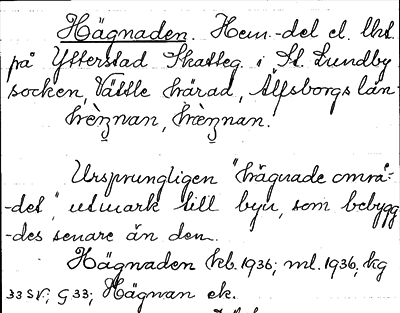 Hägnaden. Hem.-del el. lht
på Ytterstad Skatteg. i St. Lundby
socken, Vättle härad, Älfsborgs län
hèŋnan, hèŋnan.
Ursprungligen "hägnade områ-
-det", utmark till byn, som bebygg-
-des senare än den.
Hägnaden kb. 1936; ml. 1936, kg
33 SV; G 33; Hägnan ek.